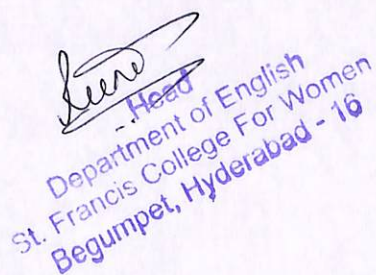 Head
Department of English
St. Francis College For Women
Begumpet, Hyderabad - 16